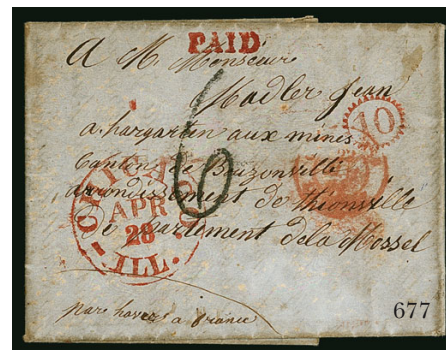 PAID
A M. Monsieur
Madler Jean
a hargarten aux mines
Canton de Bouzonville
arrondissement de thionville
Departement dela Mossel
10
CHICAGO
APR
28
ILL.
6
par havere a france
677